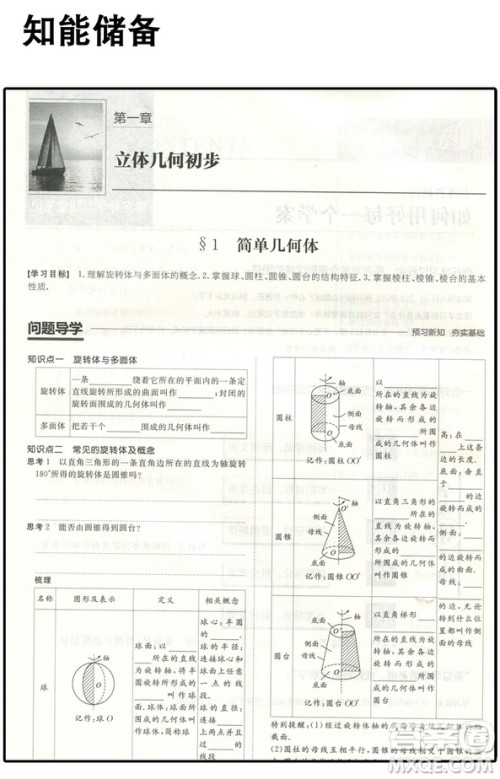 知能储备
第一章
立体几何初步
§1 简单几何体
【学习目标】 1.理解旋转体与多面体的概念.2.掌握球、圆柱、圆锥、圆台的结构特征.3.掌握棱柱、棱锥、棱台的基本
性质.
问题导学
预习新知 夯实基础
知识点一 旋转体与多面体
旋转体
一条______绕着它所在的平面内的一条定
直线旋转所形成的曲面叫作______;封闭的
旋转面围成的几何体叫作______
多面体
把若干个______围成的几何体叫作______
知识点二 常见的旋转体及概念
思考1 以直角三角形的一条直角边所在的直线为轴旋转
180°所得的旋转体是圆锥吗?
思考2 能否由圆锥得到圆台?
梳理
名称 图形及表示 定义 相关概念
球
记作:球O
球面:以______
______所在的直线
为旋转轴,将半
圆旋转所形成的
______叫作球
面.球体:______
所围成的几何体
叫作球体,简称球
球心:半圆
的______.
球的半径:
连接球心和
球面上任意
一点的线
段.
球的直径:
连接球面上
两点并且过
球心的线段
圆柱
轴
底面
侧面
母线
底面
记作:圆柱OO′
以______
所在的直线为旋
转轴,其余各边
旋转而形成的
______所围
成的几何体叫作
圆柱
圆锥
轴
侧面
母线
底面
记作:圆锥OO′
以直角三角形的
______所在的
直线为旋转轴,
其余各边旋转而
形成的______
所围成的几何体
叫作圆锥
圆台
轴
底面
侧面
母线
底面
记作:圆台OO′
以直角梯形______
______
所在的直线为旋
转轴,其余各边
旋转而形成的
______所围
成的几何体叫作
圆台
高:在______
______上这条
边的长度.
底面:垂直
于______
的边旋转而
成的______.
侧面:______
______
的边旋转而
成的曲面.
母线:______
______
的边,无论
转到什么位
置都叫作侧
面的母线
特别提醒:(1)经过旋转体轴的
截面.
(2)圆柱的母线互相平行,圆锥的母线